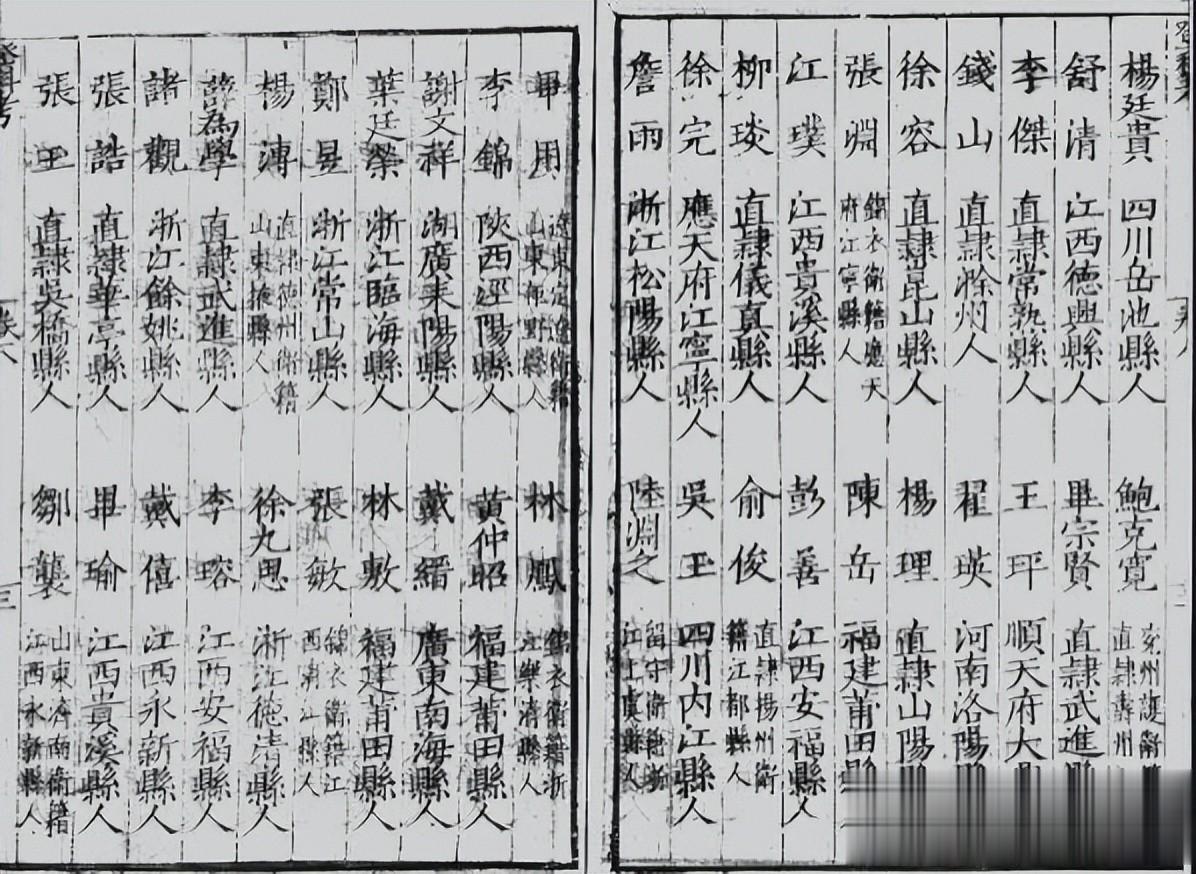 楊廷貴 四川岳池縣人 鮑克寬 兗州護衛 直隸壽州
舒清 江西德興縣人 畢宗賢 直隸武進縣
李傑 直隸常熟縣人 王玶 順天府大
錢山 直隸滁州人 翟瑛 河南洛陽
徐容 直隸崑山縣人 楊理 直隸山陽
張淵 錦衣衛籍應天府江寧縣人 陳岳 福建莆田縣
江璞 江西貴溪縣人 彭善 江西安福縣人
柳琰 直隸儀真縣人 俞俊 直隸揚州衛籍江都縣人
徐完 應天府江寧縣人 吳玉 四川內江縣人
詹雨 浙江松陽縣人 陸淵之 留守衛籍浙江上虞縣人
畢用 遼東定遼衛籍山東鉅野縣人 林鳳 錦衣衛籍浙江樂清縣人
李錦 陝西涇陽縣人 黃仲昭 福建莆田縣人
謝文祥 湖廣耒陽縣人 戴縉 廣東南海縣人
葉廷榮 浙江臨海縣人 林敷 福建莆田縣人
鄭昱 浙江常山縣人 張敏 錦衣衛籍江西清江縣人
楊溥 直隸德州衛籍山東掖縣人 徐九思 浙江德清縣人
薛為學 直隸武進縣人 李瑢 江西安福縣人
諸觀 浙江餘姚縣人 戴僖 江西永新縣人
張誥 直隸華亭縣人 畢瑜 江西貴溪縣人
張玉 直隸吳橋縣人 鄒襲 山東濟南衛籍江西永新縣人
登科考
卷八
三